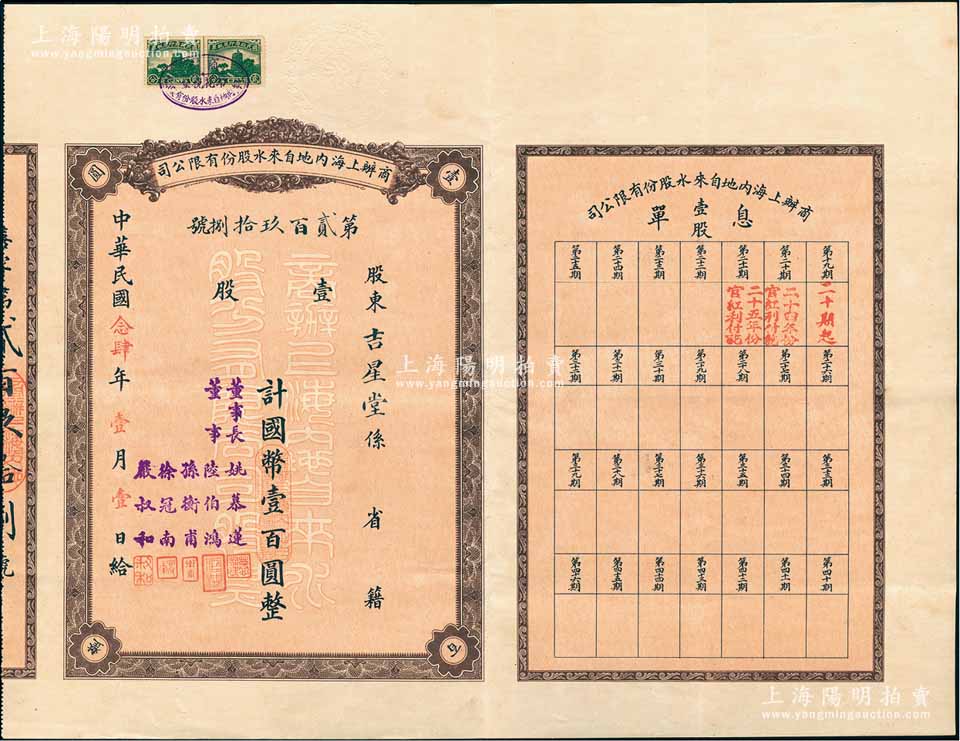 上海陽明拍賣
www.yangmingauction.com
商辦上海內地自來水股份有限公司
壹百圓整
第貳百玖拾捌號
股東吉星堂係 省 籍
壹股
計國幣壹百圓整
董事長 姚慕蓮
董事 陸伯鴻
孫衡甫
徐冠南
嚴叔和
中華民國念肆年壹月壹日給
商辦上海內地自來水股份有限公司
壹股息單
第十九期
第二十期
第二十一期
第二十二期
第二十三期
第二十四期
第二十五期
二十期起
二十四年份
官紅利付訖
二十五年份
官紅利付訖
第二十六期
第二十七期
第二十八期
第二十九期
第三十期
第三十一期
第三十二期
第三十三期
第三十四期
第三十五期
第三十六期
第三十七期
第三十八期
第三十九期
第四十期
第四十一期
第四十二期
第四十三期
第四十四期
第四十五期
第四十六期
上海陽明拍賣
www.yangmingauction.com
上海陽明拍賣
www.yangmingauction.com